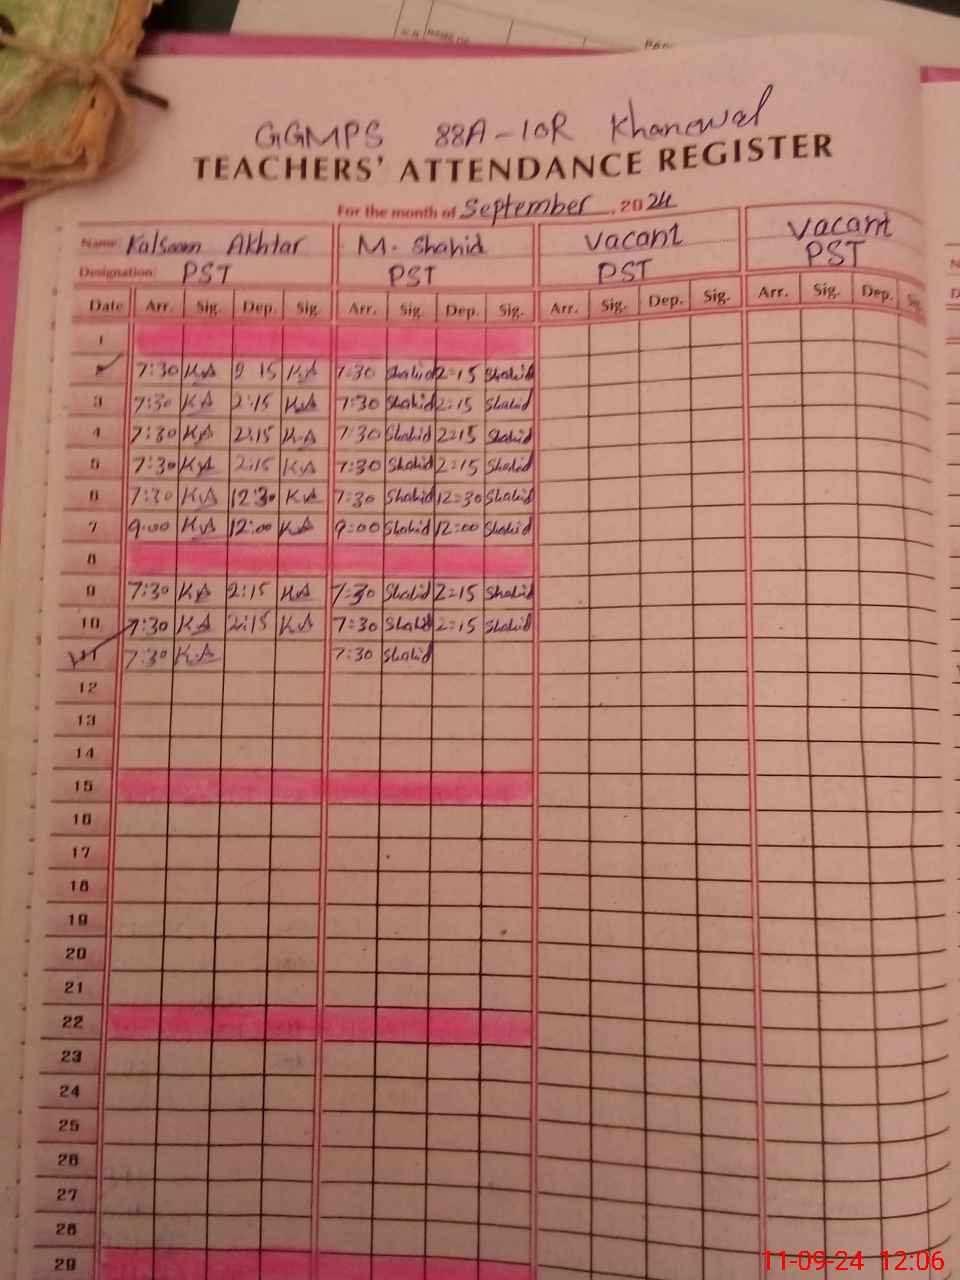 GGMPS 88A-10R Khanewal
TEACHERS' ATTENDANCE REGISTER
For the month of September, 2024
Name: Kalsoom Akhtar M. Shahid Vacant Vacant
Designation: PST PST PST PST
Date Arr. Sig. Dep. Sig. Arr. Sig. Dep. Sig. Arr. Sig. Dep. Sig. Arr. Sig. Dep. Sig.
1
2 7:30 KA 2 15 KA 7:30 Shahid 2:15 Shahid
3 7:30 KA 2:15 KA 7:30 Shahid 2:15 Shahid
4 7:30 KA 2:15 K.A 7:30 Shahid 2:15 Shahid
5 7:30 KA 2:15 KA 7:30 Shahid 2:15 Shahid
6 7:30 KA 12:30 KA 7:30 Shahid 12:30 Shahid
7 9:00 KA 12:00 KA 9:00 Shahid 12:00 Shahid
8
9 7:30 KA 2:15 KA 7:30 Shahid 2:15 Shahid
10 7:30 KA 2:15 KA 7:30 Shahid 2:15 Shahid
11 7:30 K.A 7:30 Shahid
12
13
14
15
16
17
18
19
20
21
22
23
24
25
26
27
28
29
11-09-24 12:06